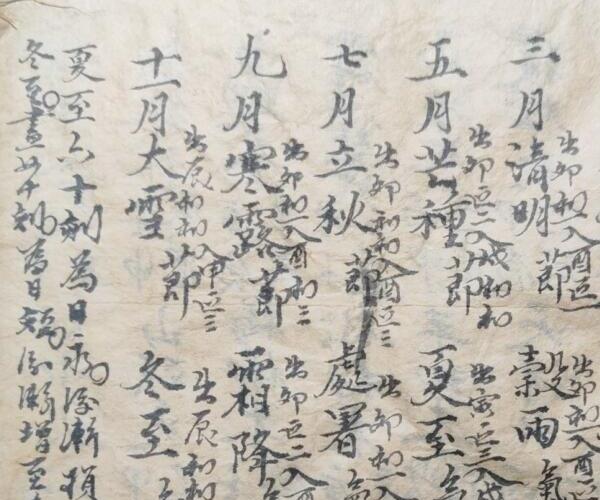 三月清明節
出卯初一入酉正一
榖雨氣
出卯初入酉正
五月芒種節
出卯正二入戌初初
夏至氣
出寅正三入戌
七月立秋節
出卯初初入酉正三
處暑氣
出卯初一入
九月寒露節
出卯初一入酉初三
霜降氣
出卯正二入酉
十一月大雪節
出辰初初入申正三
冬至氣
出辰初初
夏至六十刻為日永後漸損
冬至晝四十刻為日短後漸增至